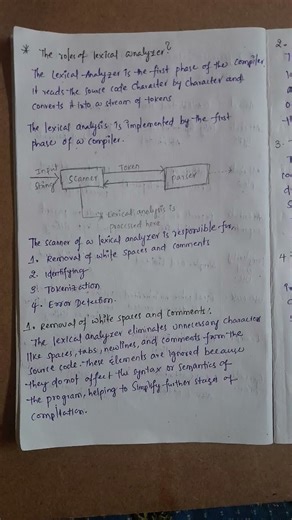 * The roles of lexical analyzer?
The Lexical-Analyzer is the first phase of the compiler
It reads the source code character by character and
converts it into a stream of tokens.
The lexical analysis is implemented by the first
phase of a compiler.
Input
String
Scanner
Token
Parser
lexical analysis is
processed here
The scanner of a lexical analyzer is responsible for
1. Removal of white spaces and comments
2. Identifying
3. Tokenization
4. Error Detection.
1. Removal of white spaces and comments:
The lexical analyzer eliminates unnecessary character
like spaces, tabs, newlines, and comments from the
source code. These elements are ignored because
they do not affect the syntax or semantics of
the program, helping to simplify further stages of
compilation.
2.
3.